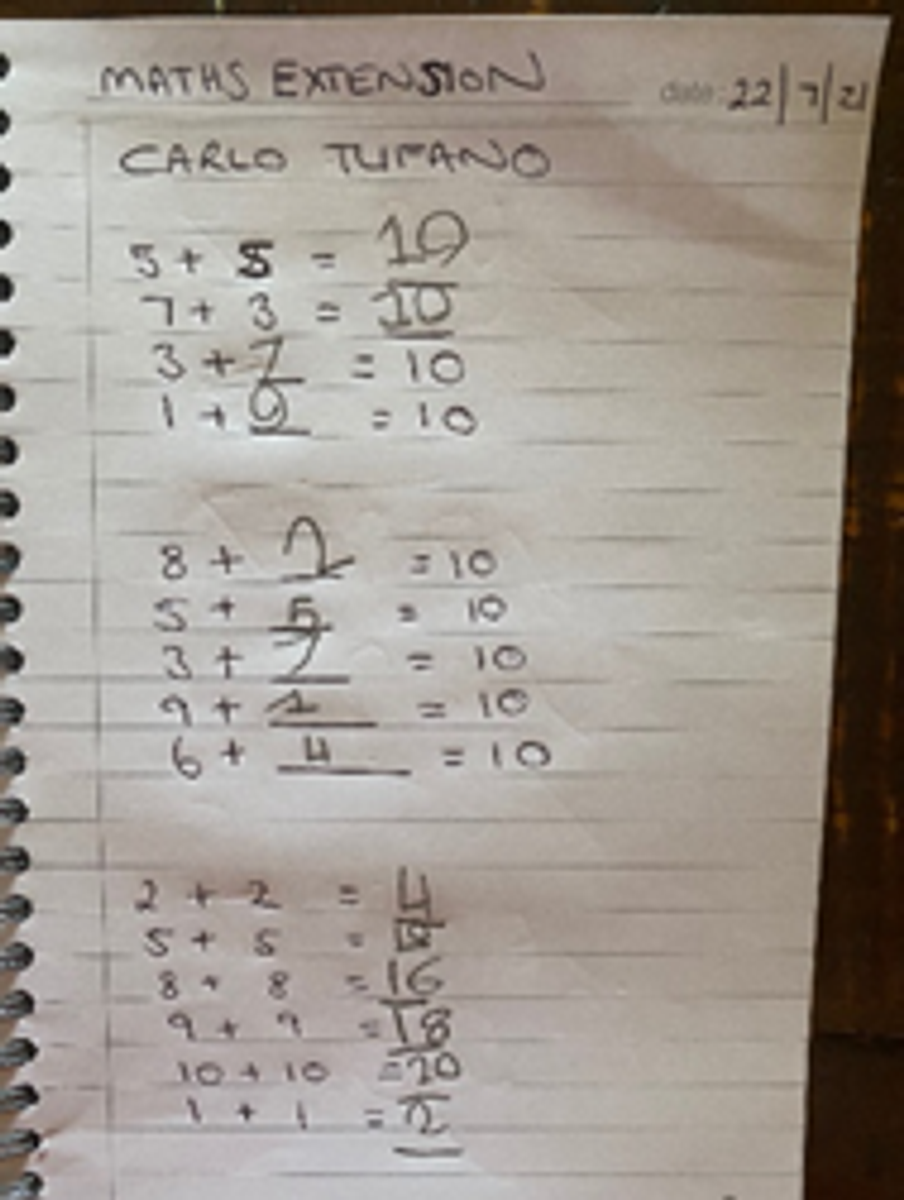 MATHS EXTENSION
date: 22/7/21
CARLO TUFANO
5 + 5 = 10
7 + 3 = 10
3 + 7 = 10
1 + 9 = 10
8 + 2 = 10
5 + 5 = 10
3 + 7 = 10
9 + 1 = 10
6 + 4 = 10
2 + 2 = 4
5 + 5 =
8 + 8 = 16
9 + 9 = 18
10 + 10 = 20
1 + 1 = 2